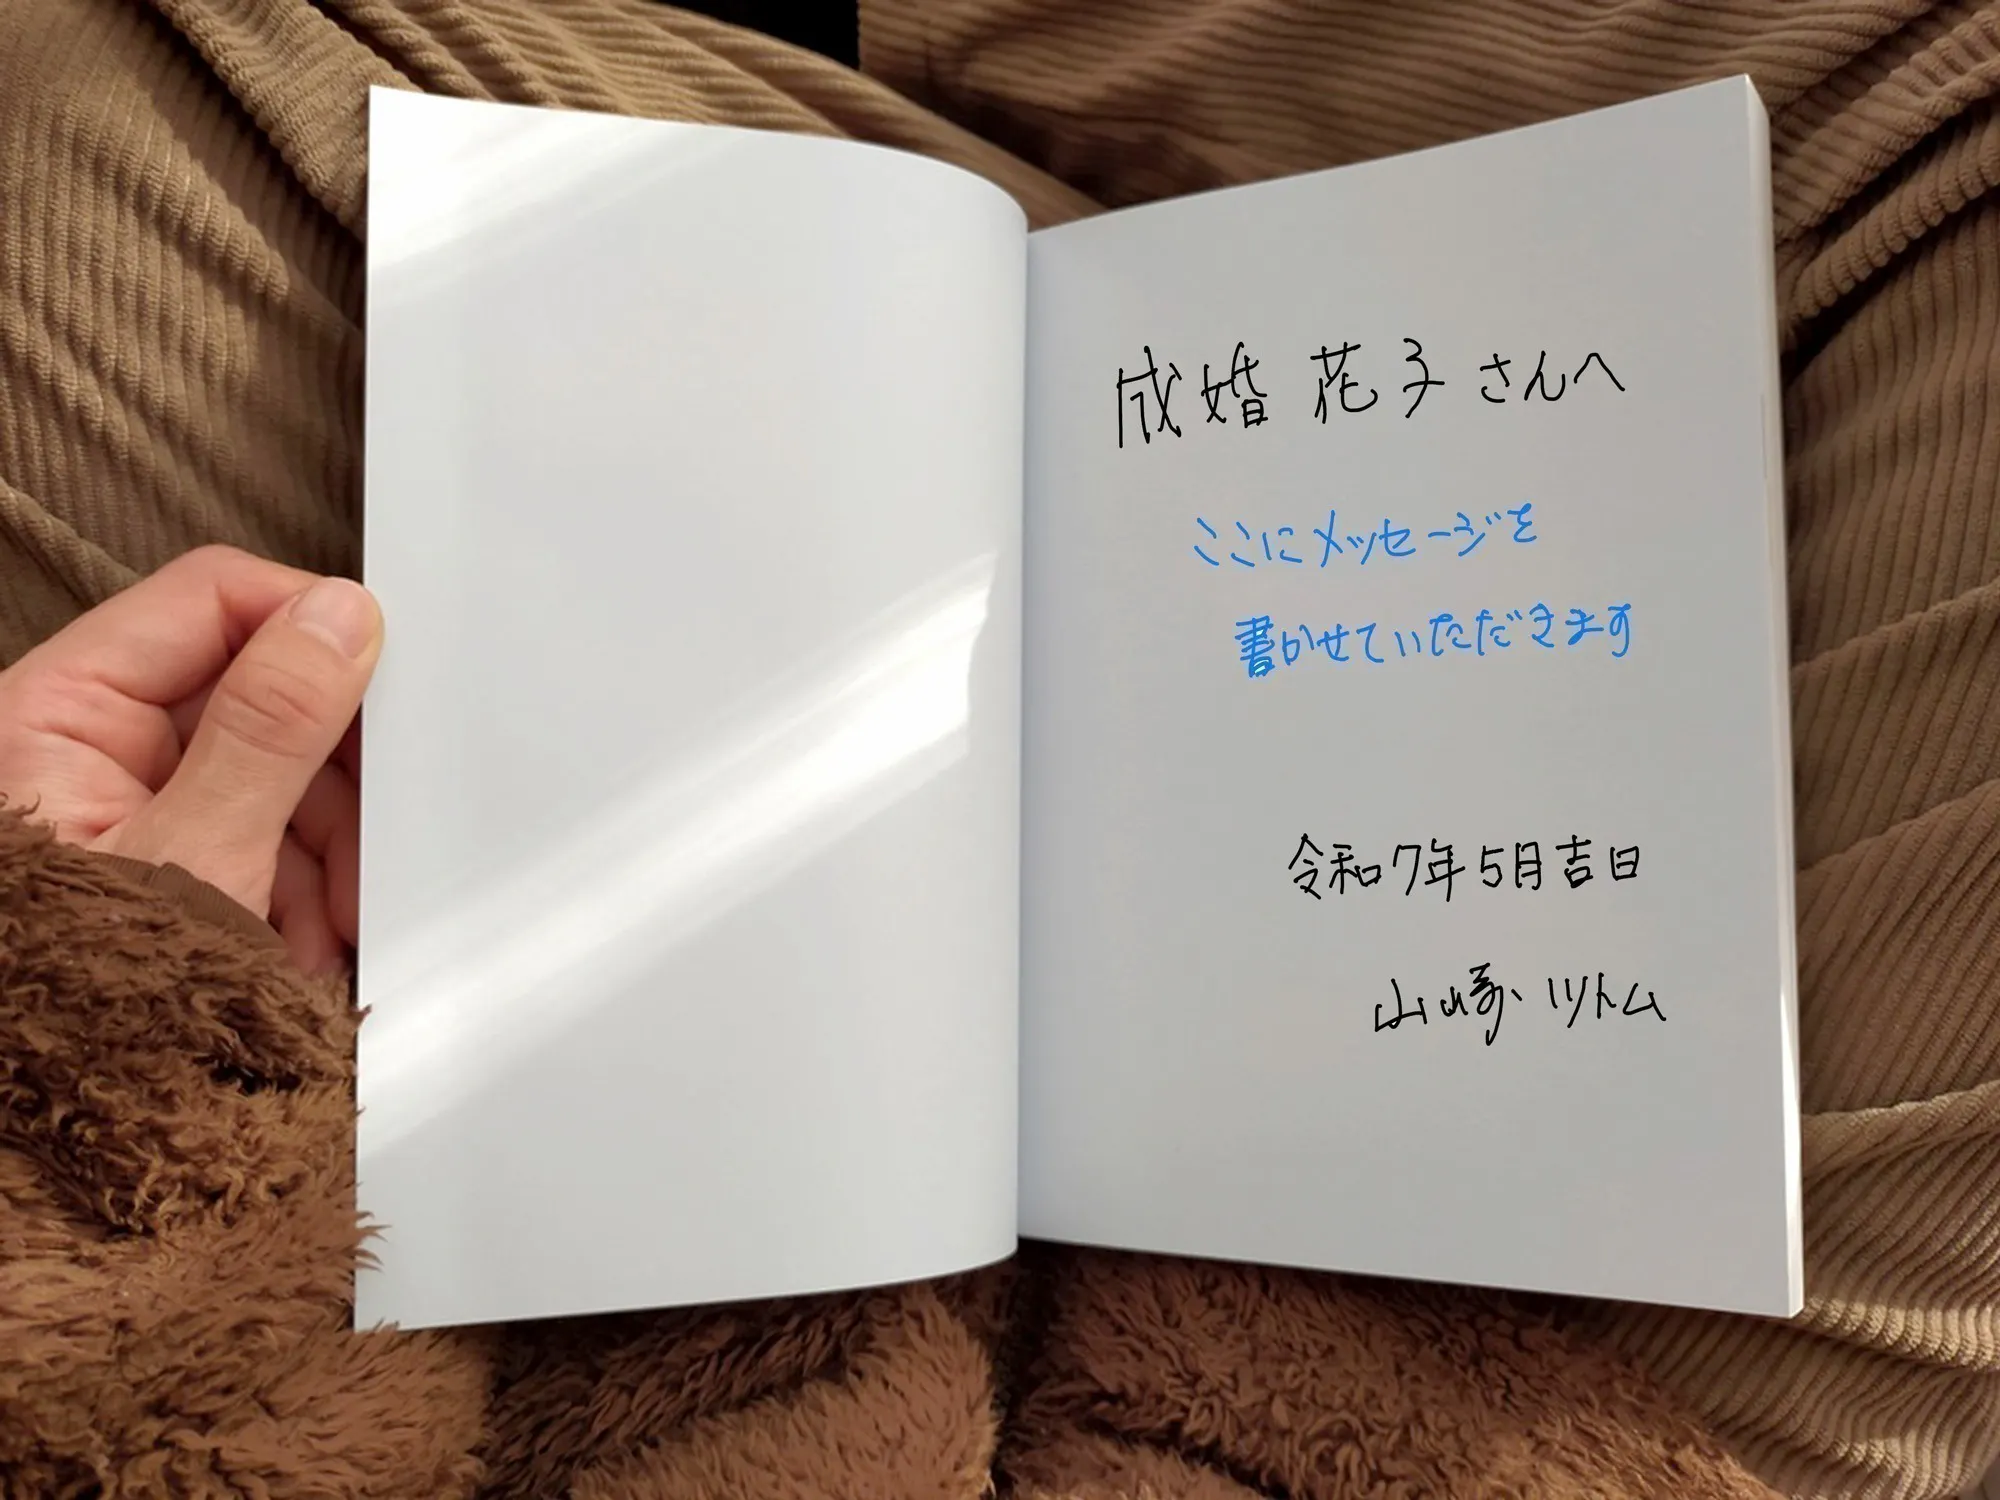 成婚 花子 さんへ
ここにメッセージを
書かせていただきます
令和7年5月吉日
山﨑 ツトム